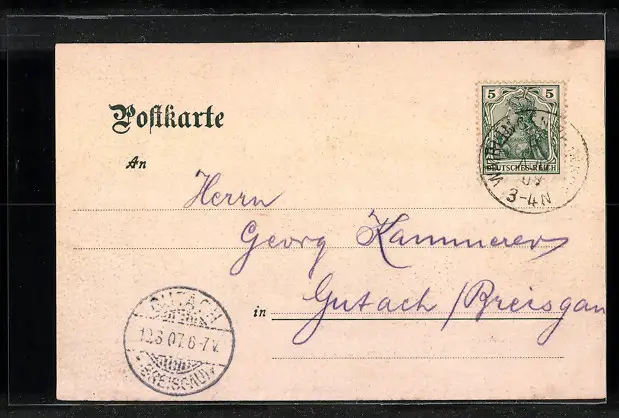 Postkarte
An
5 5
DEUTSCHES REICH
3-4N
Herrn
Georg Kammerer
in Gutach / Breisgau
GUTACH
6-7V.
(BREISGAU)